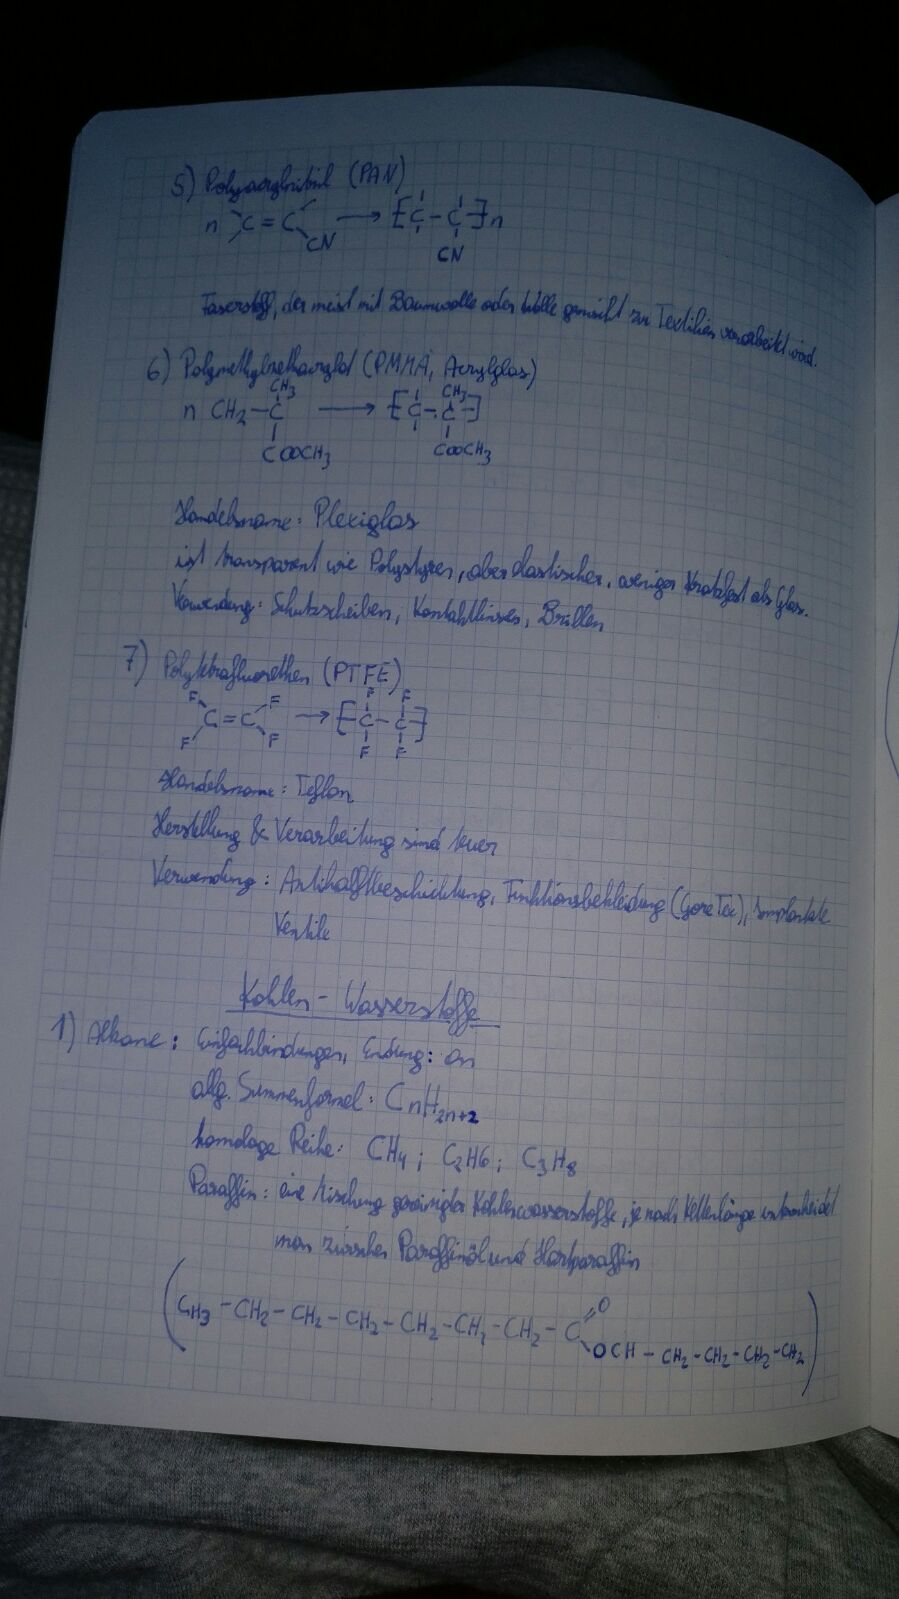 5) Polyacrylnitril (PAN)
n C = C → [C - C]n
CN CN
Faserstoff, der meist mit Baumwolle oder Wolle gemischt zu Textilien verarbeitet wird.
6) Polymethylmethacrylat (PMMA, Acrylglas)
CH3 CH3
n CH2 - C → [C - C]
COOCH3 COOCH3
Handelsname: Plexiglas
ist transparent wie Polystyren, aber elastischer, weniger kratzfest als Glas.
Verwendung: Schutzscheiben, Kontaktlinsen, Brillen
7) Polytetrafluorethen (PTFE)
F F F F
C = C → [C - C]
F F F F
Handelsname: Teflon
Herstellung & Verarbeitung sind teuer
Verwendung: Antihaftbeschichtung, Funktionsbekleidung (GoreTex), Implantate
Ventile
Kohlen - Wasserstoffe
1) Alkane: Einfachbindungen, Endung: an
allg. Summenformel: CnH2n+2
homologe Reihe: CH4; C2H6; C3H8
Paraffin: eine Mischung gereinigter Kohlenwasserstoffe, je nach Kettenlänge unterscheidet
man zwischen Paraffinöl und Hartparaffin
(CH3 - CH2 - CH2 - CH2 - CH2 - CH2 - CH2 - C =O
OCH - CH2 - CH2 - CH2 - CH2)